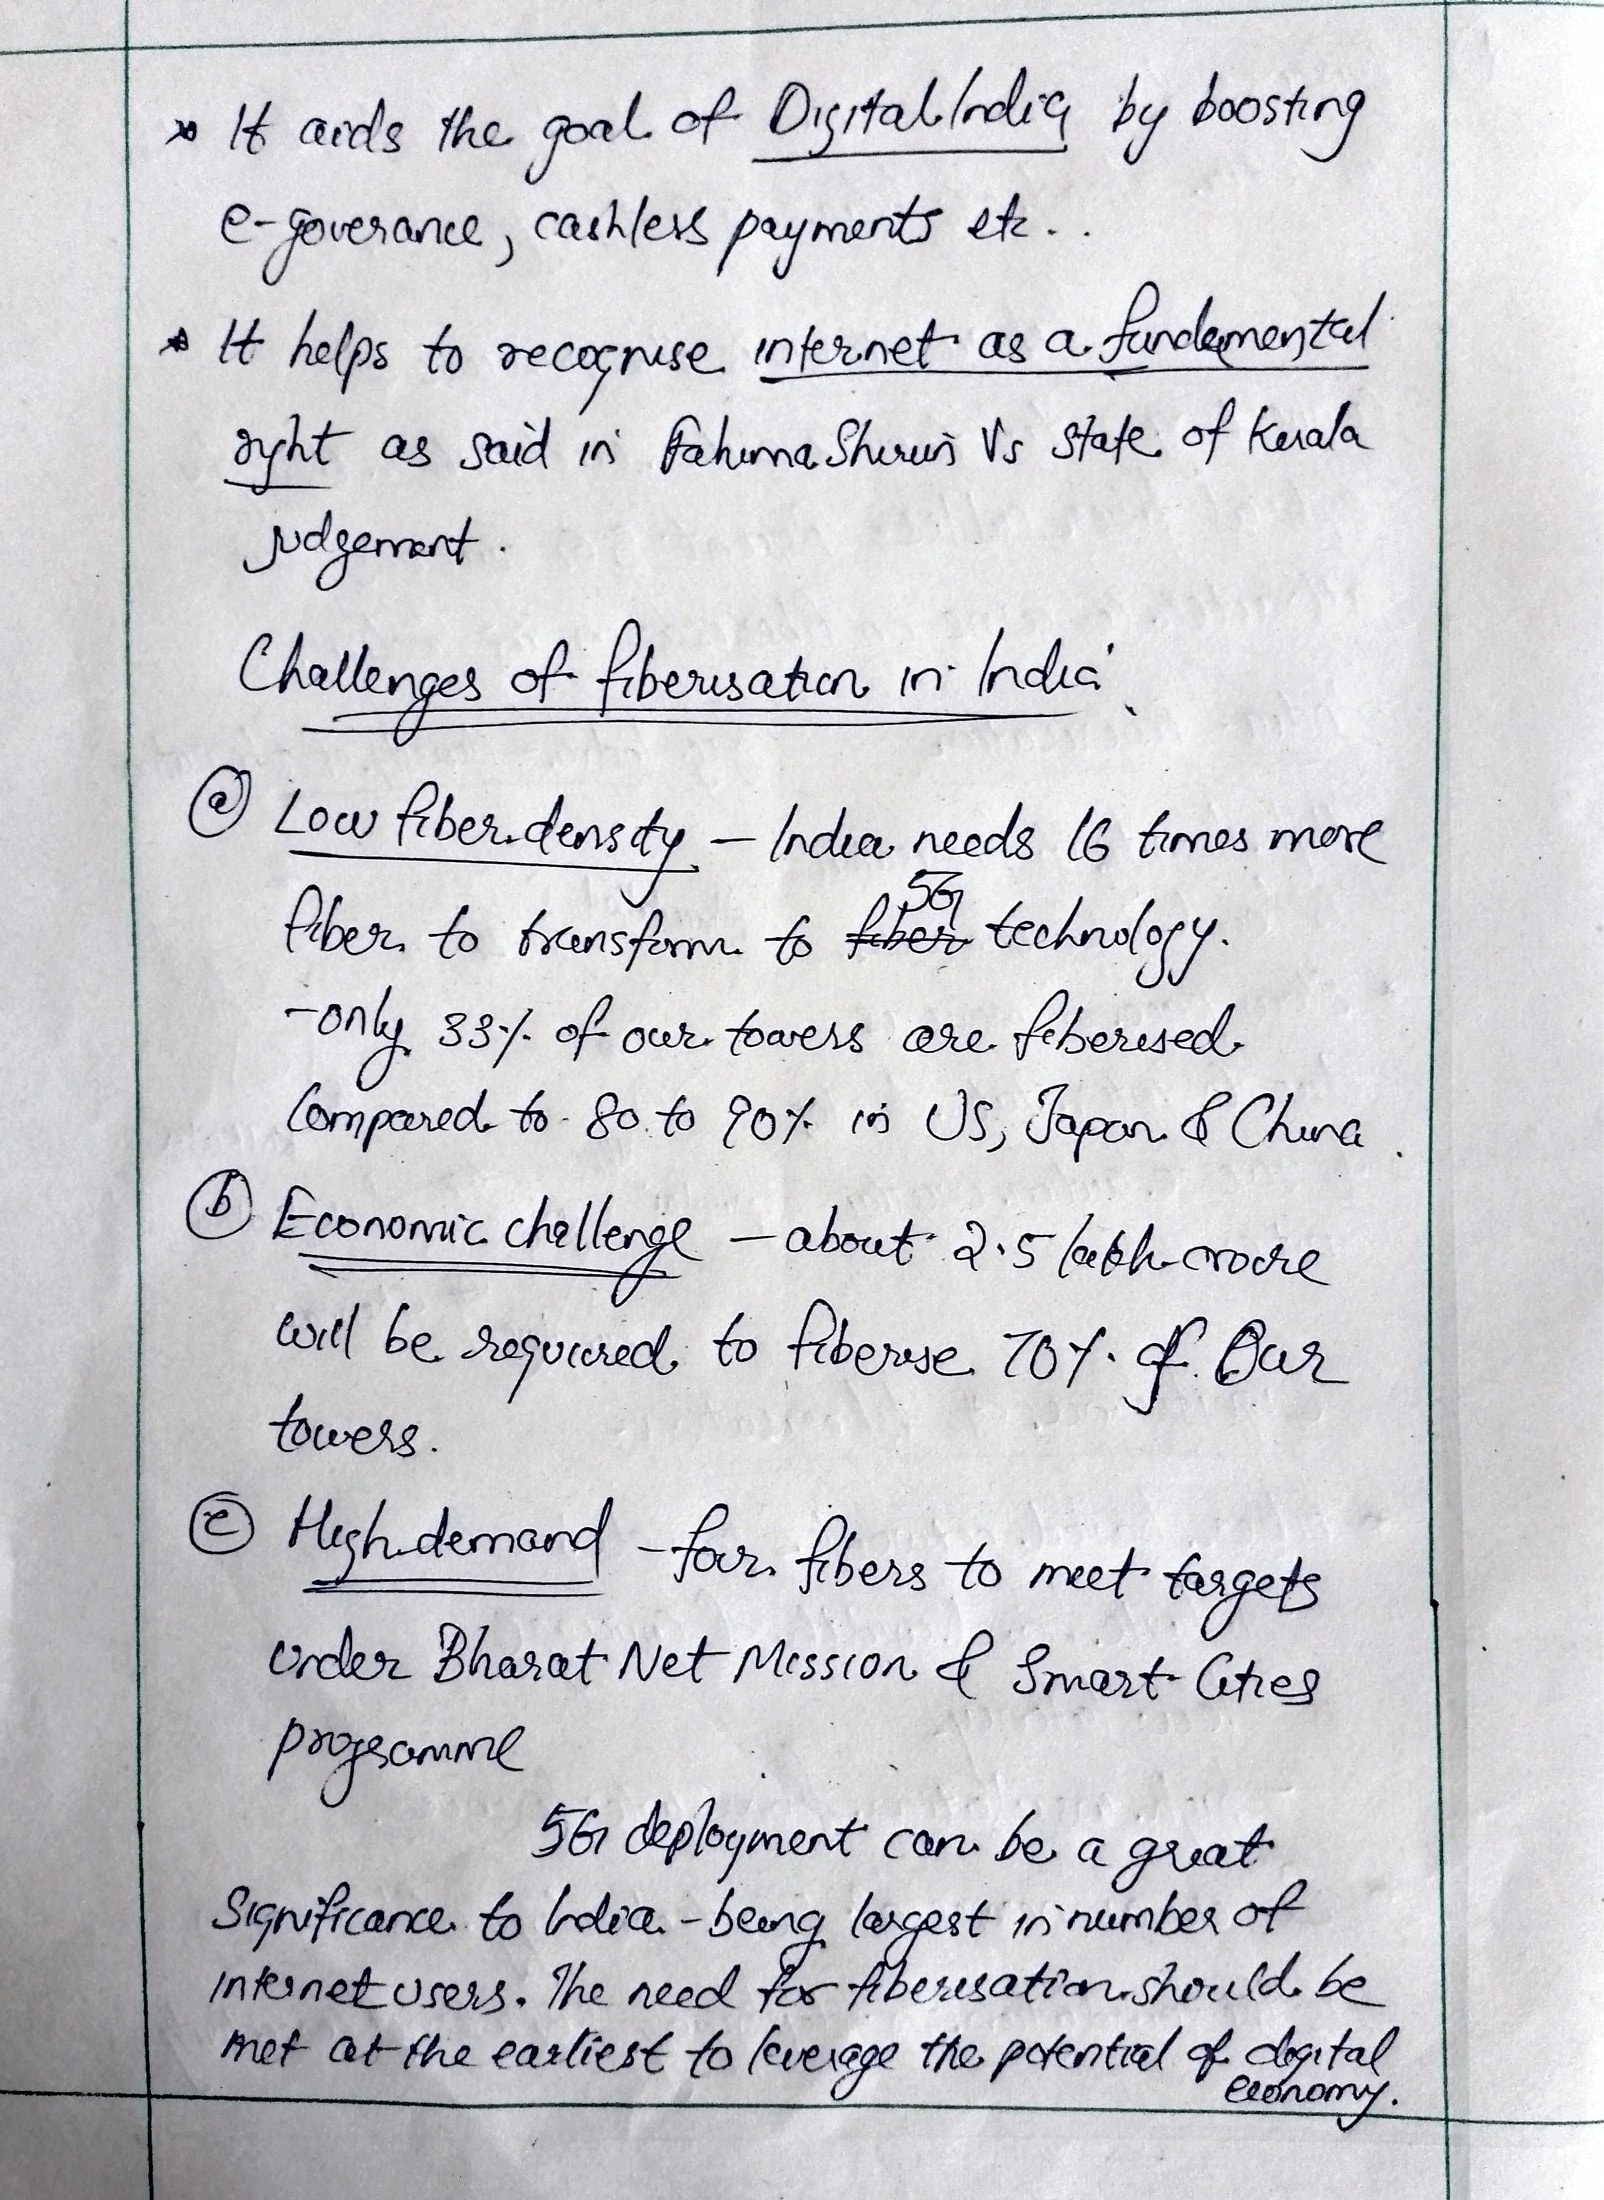 * It aids the goal of Digital India by boosting
e-goverance, cashless payments etc..
* It helps to recognise internet as a fundamental
right as said in Fahima Shirin Vs State of Kerala
judgement.
Challenges of fiberisation in India
(a) Low fiber density - India needs 16 times more
5G
fiber to transform to fiber technology.
- only 33% of our towers are fiberised
Compared to 80 to 90% in US, Japan & China.
(b) Economic challenge - about 2.5 lakh crore
will be required to fiberise 70% of Our
towers.
(c) High demand - for fibers to meet targets
under Bharat Net Mission & Smart Cities
programme
5G deployment can be a great
Significance to India - being largest in number of
internet users. The need for fiberisation should be
met at the earliest to leverage the potential of digital
economy.